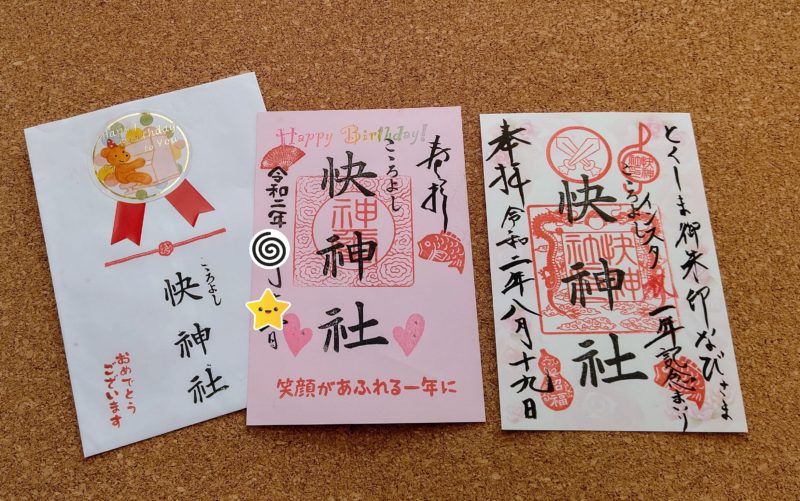 Happy Birthday
to You
こころよし
快神社
おめでとう
ございます
Happy Birthday!
奉拝
こころよし
快神社
令和二年
日
笑顔があふれる一年に
とくしま御朱印なびさま
インスタ
一年記念まつり
こころよし
快神社
奉拝 令和二年八月十九日